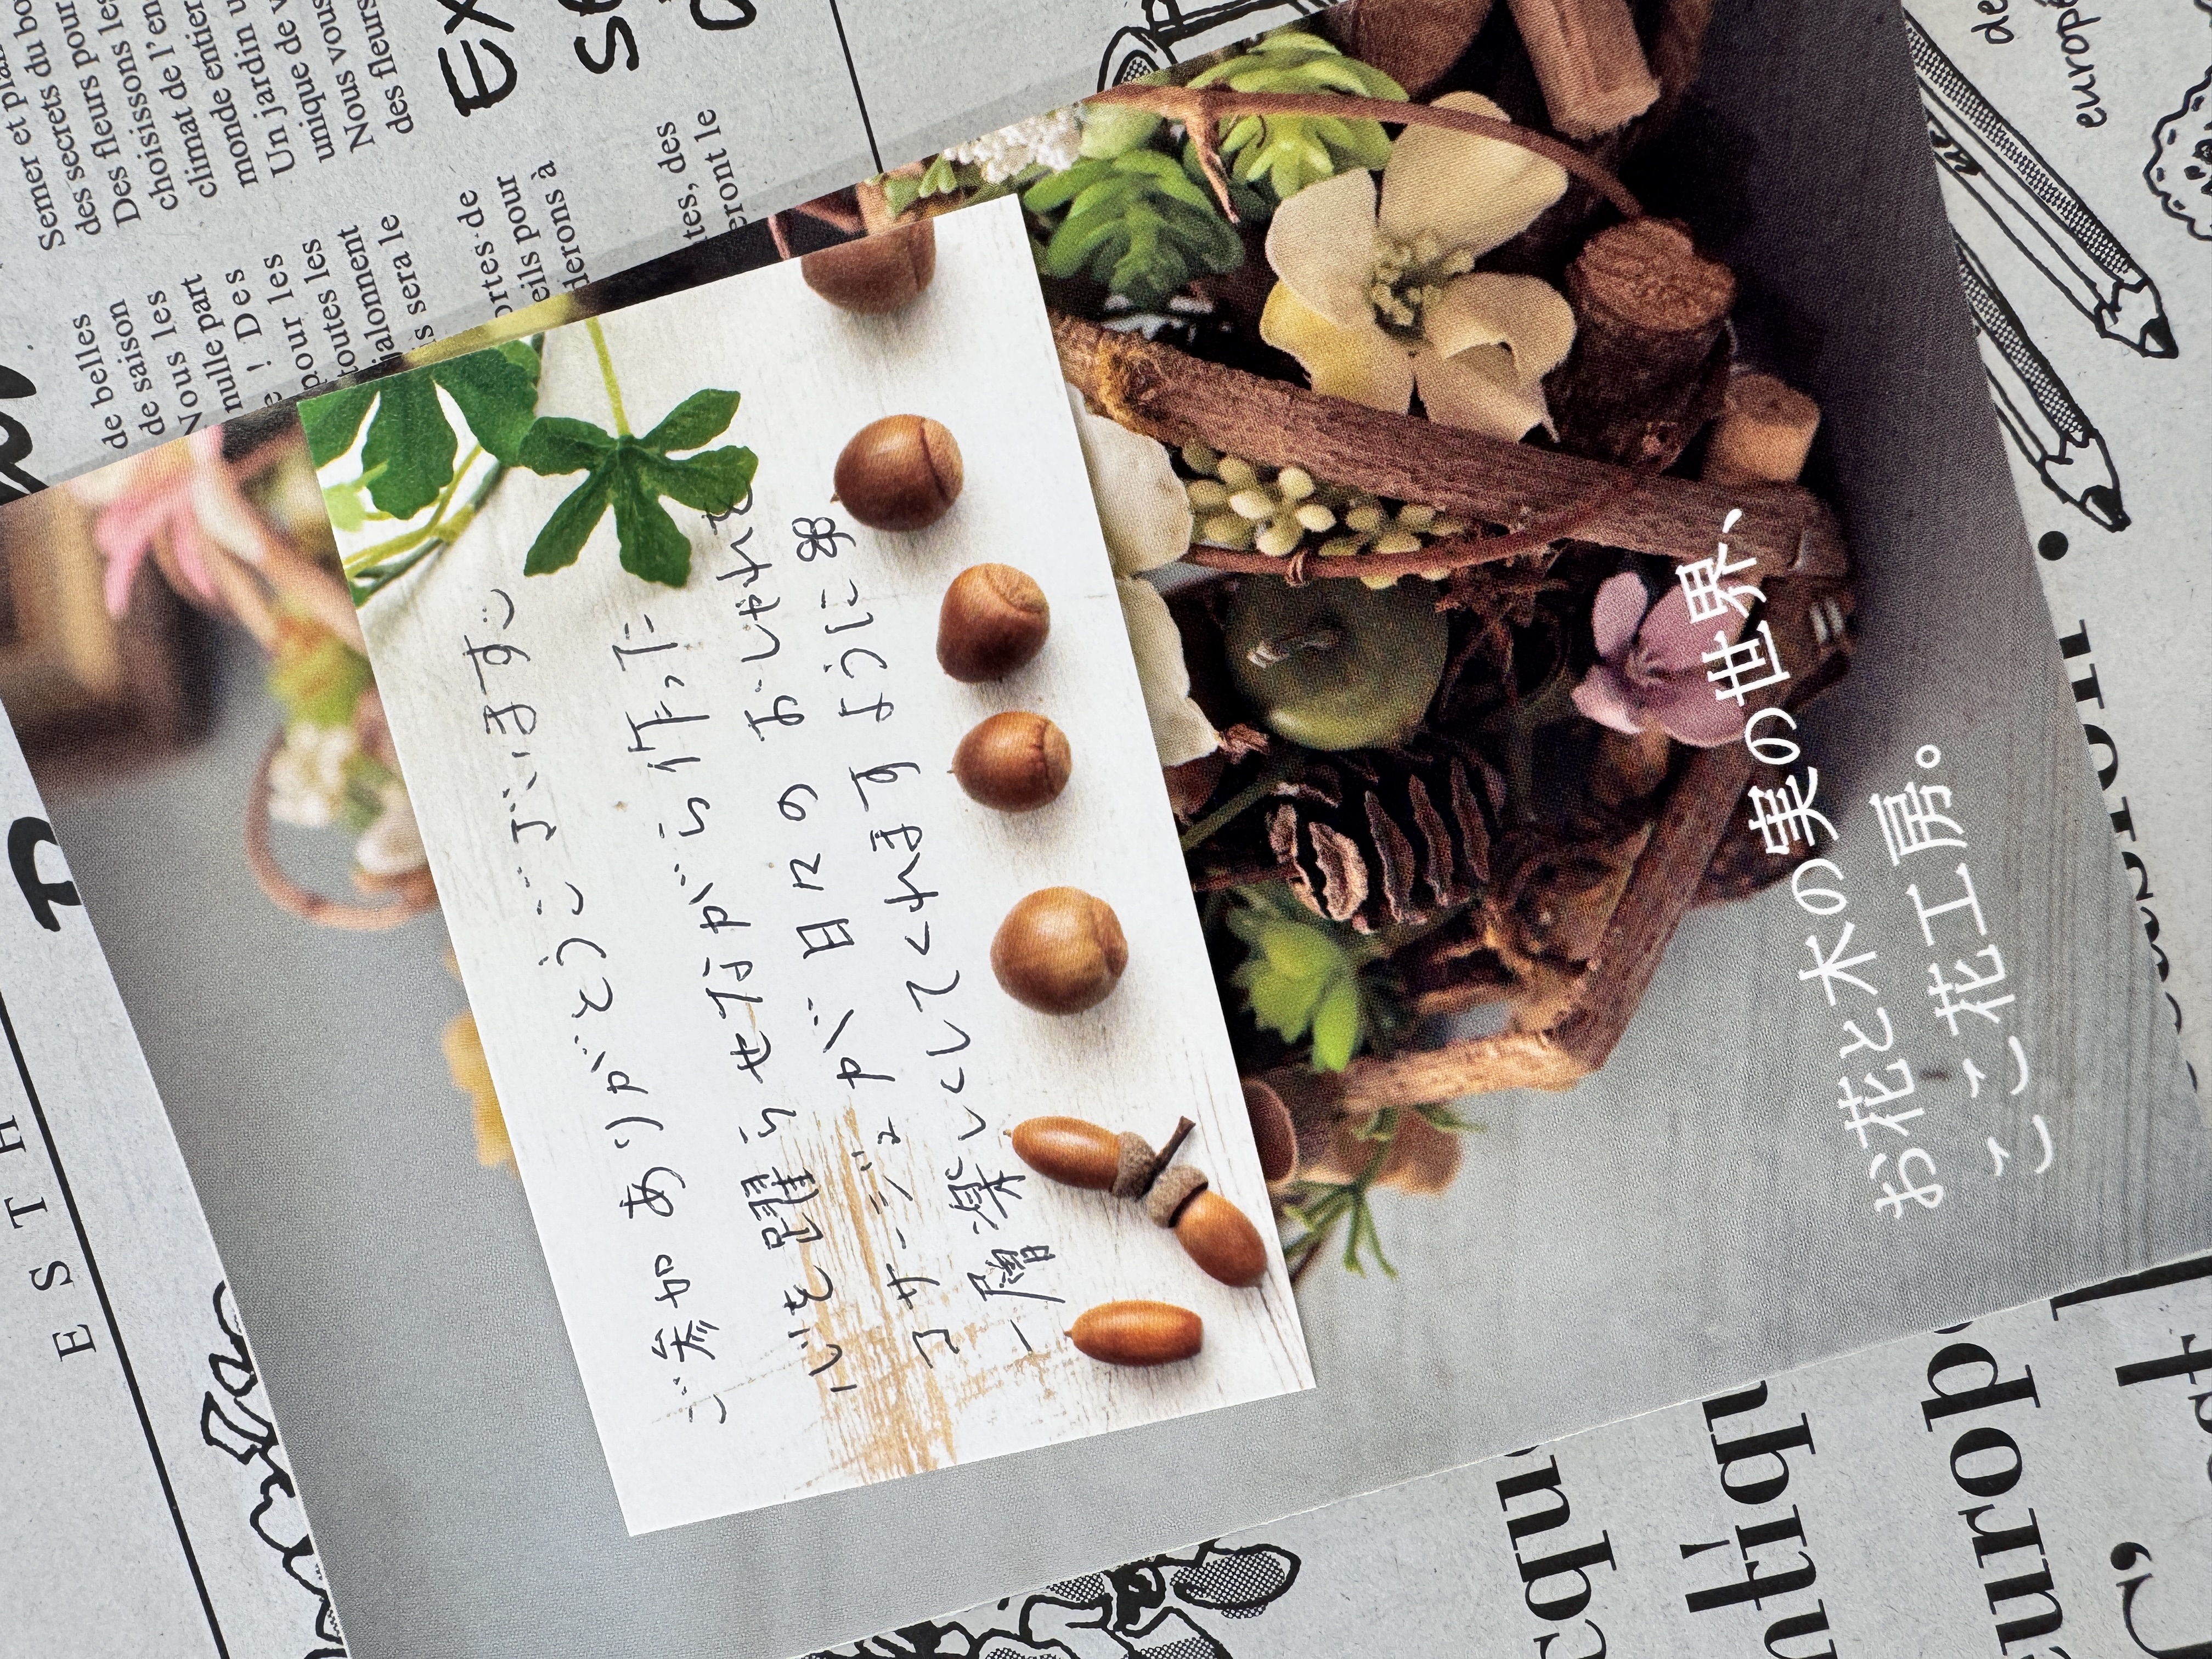 Semer et plan
des secrets du bo
des fleurs pour
Des
choisissons les
climat de l'en
monde entier
Un jardin u
unique de v
Nous vous
des fleurs
de belles
de saison
Nous les
nulle part
! Des
pour les
toutes les
jalonment
sera le
ortes de
eils pour
derons à
tes, des
eront le
ESTH
ご参加 ありがとうございます
心を躍らせながら作った
コサージュが 日々の おしゃれを
一層 楽しくしてくれますように
お花と木の実の世界、
ここ花工房。
de
europ